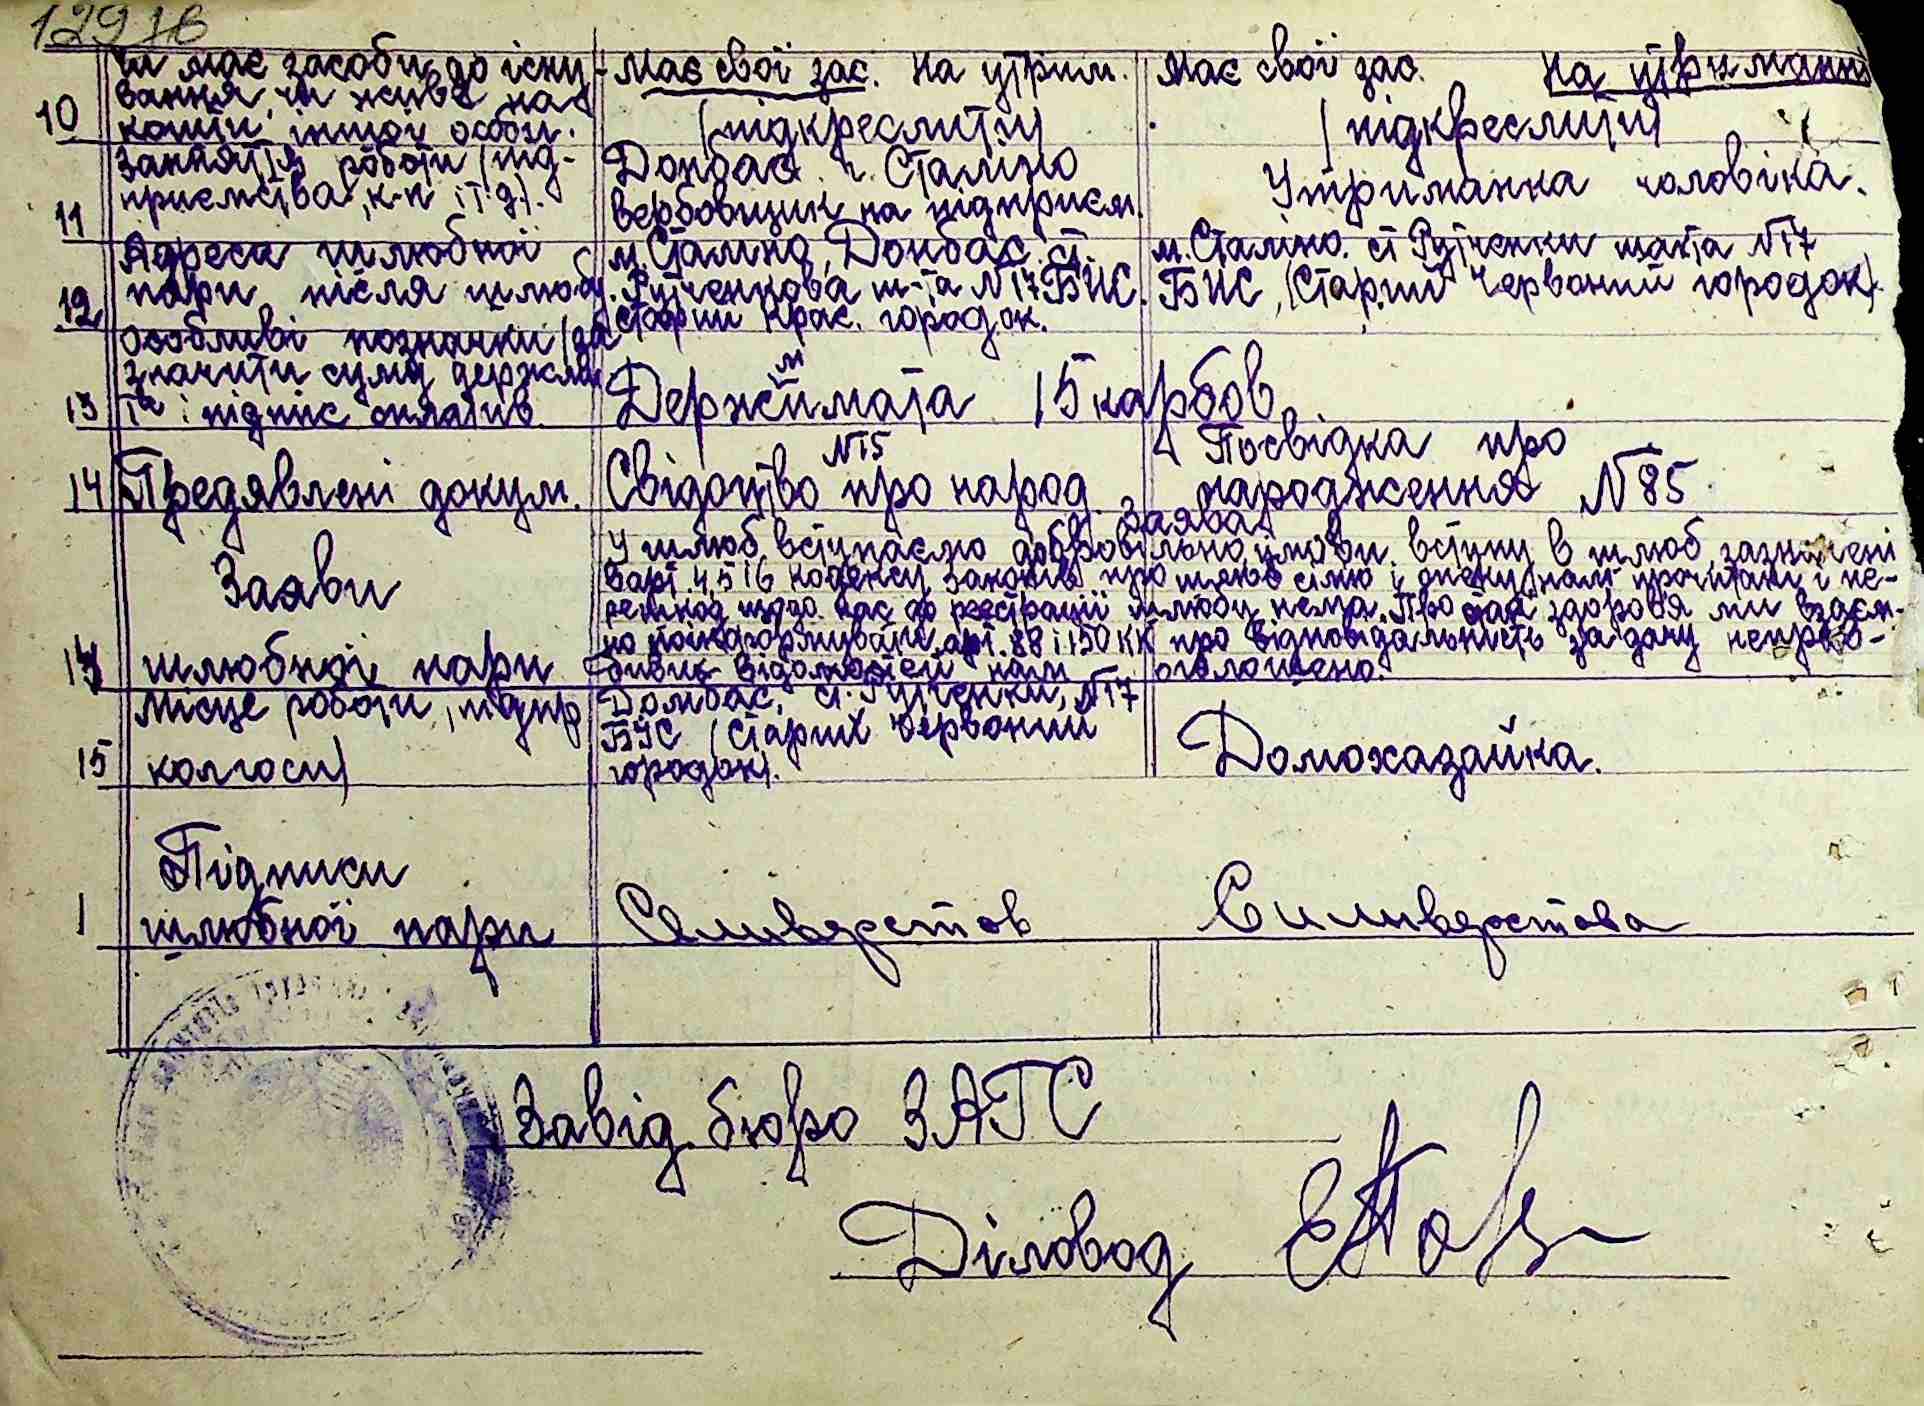 129 зв
10
чи має засоби до існу-
вання, чи живе на
кошти іншої особи.
Має свої зас. На утрим.
(підкреслити)
Має свої зас. На утриманні
(підкреслити)
11
Заняття роботи (під-
приємства, к-п і т.д.).
Донбас г. Сталіно
вербовщик на підприєм.
Утриманка чоловіка.
12
Адреса шлюбної
пари після шлюбу.
м. Сталіно, Донбас. ст.
Рутченкова ш-та N17 БИС.
старий Крас. городок.
м. Сталіно. ст Рутченки шахта N17
БИС, (Старий Червоний городок).
13
особливі позначки (за
значити суму держми
та і підпис сплатив
Держмита 15 карбов.
14
Предявлені докум.
Свідоцтво про народ. N15
Посвідка про
народження N85
Заяви
шлюбної пари
Заява
У шлюб вступаємо добровільно, умови вступу в шлюб, зазначені
в арт. 4, 5 і 6 кодексу законів про шлюб сімю і опеку, нам прочитані і пе-
решкод щодо нас до реєстрації шлюбу нема. Про стан здоровя ми взаєм-
но поінформувані, арт. 88 і 150 КК про відповідальність за дачу неправ-
оголошено.
15
місце роботи, підпр
колгосп)
Донбас, ст. Рутченки, N17
БУС (Старий Червоний
городок).
Домохазайка.
1
Підписи
шлюбної пари
Селиверстов
Силиверстова
Завід. бюро ЗАГС
Діловод